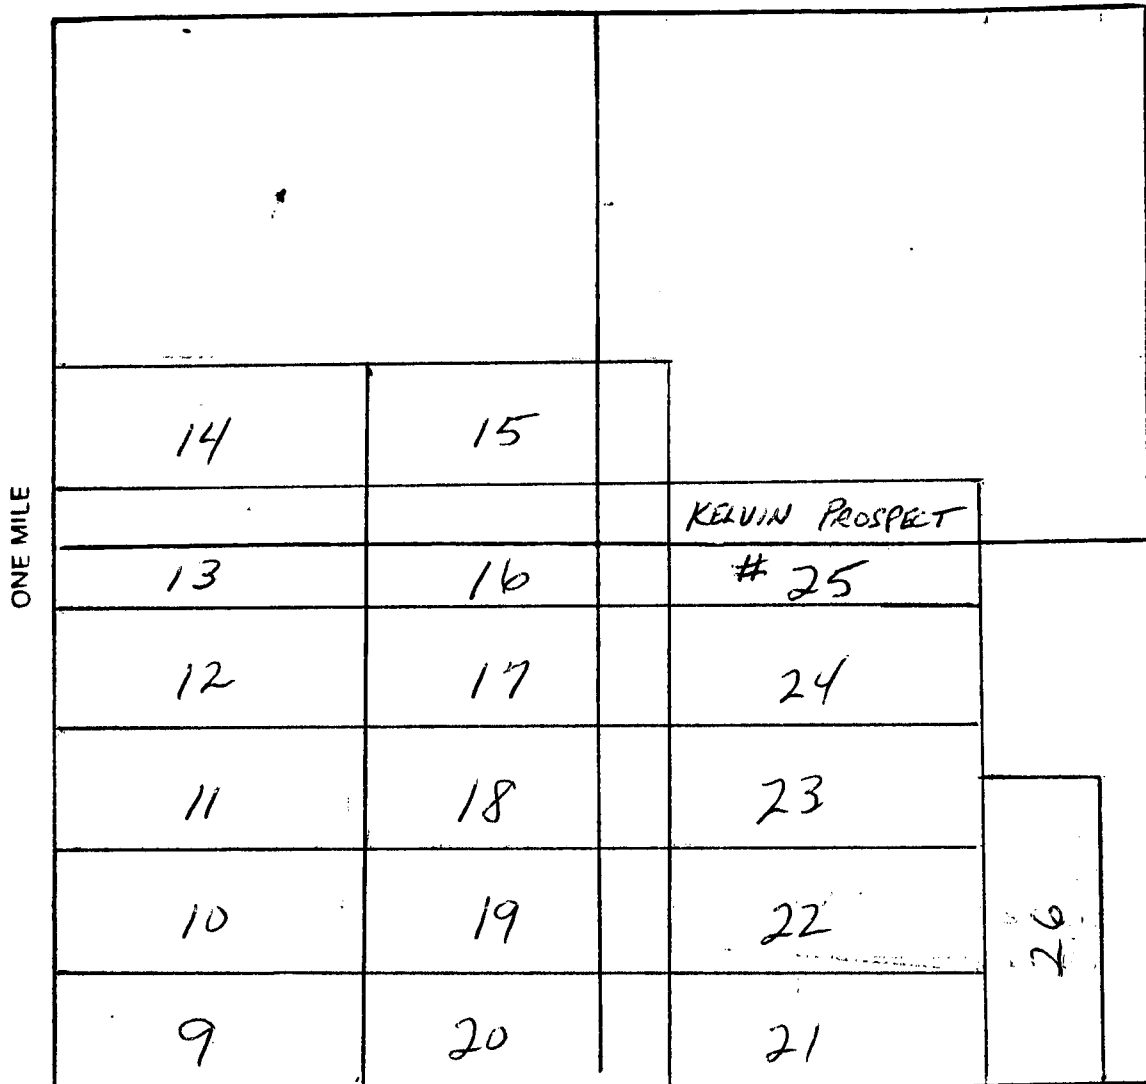 ONE MILE
14 15
KELVIN PROSPECT
13 16 # 25
12 17 24
11 18 23
10 19 22
26
9 20 21